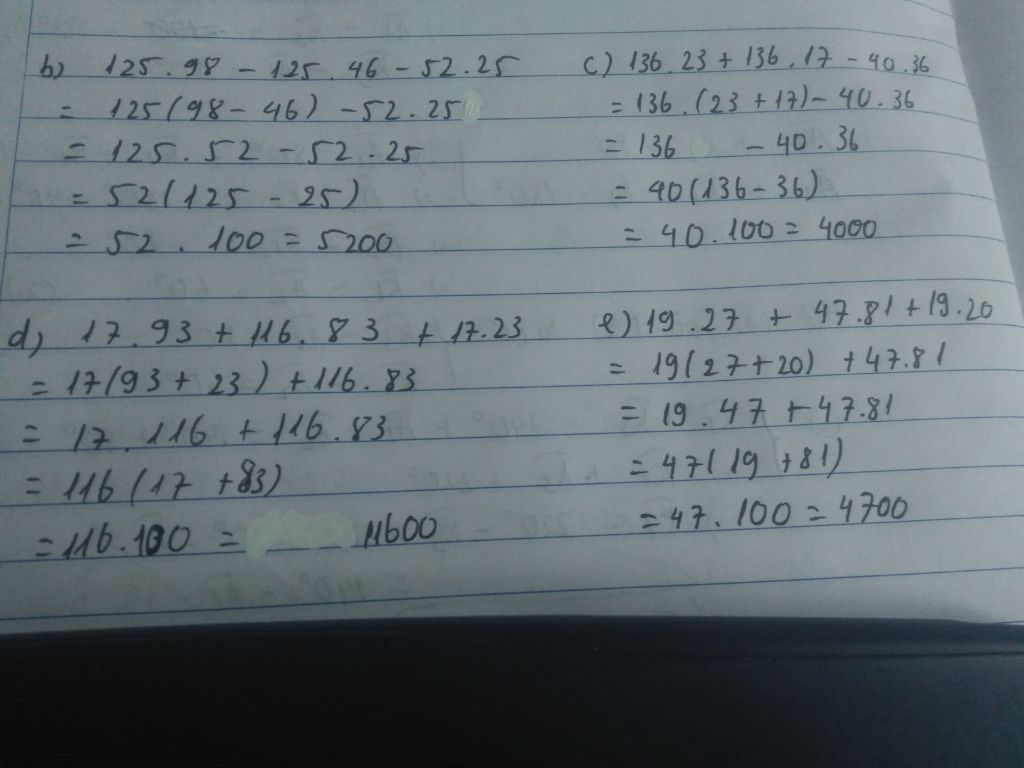 b) 125.98 - 125.46 - 52.25
= 125(98 - 46) - 52.25
= 125.52 - 52.25
= 52(125 - 25)
= 52.100 = 5200
c) 136.23 + 136.17 - 40.36
= 136.(23 + 17) - 40.36
= 136 - 40.36
= 40(136 - 36)
= 40.100 = 4000
d) 17.93 + 116.83 + 17.23
= 17(93 + 23) + 116.83
= 17.116 + 116.83
= 116(17 + 83)
= 116.100 = 11600
e) 19.27 + 47.81 + 19.20
= 19(27 + 20) + 47.81
= 19.47 + 47.81
= 47(19 + 81)
= 47.100 = 4700